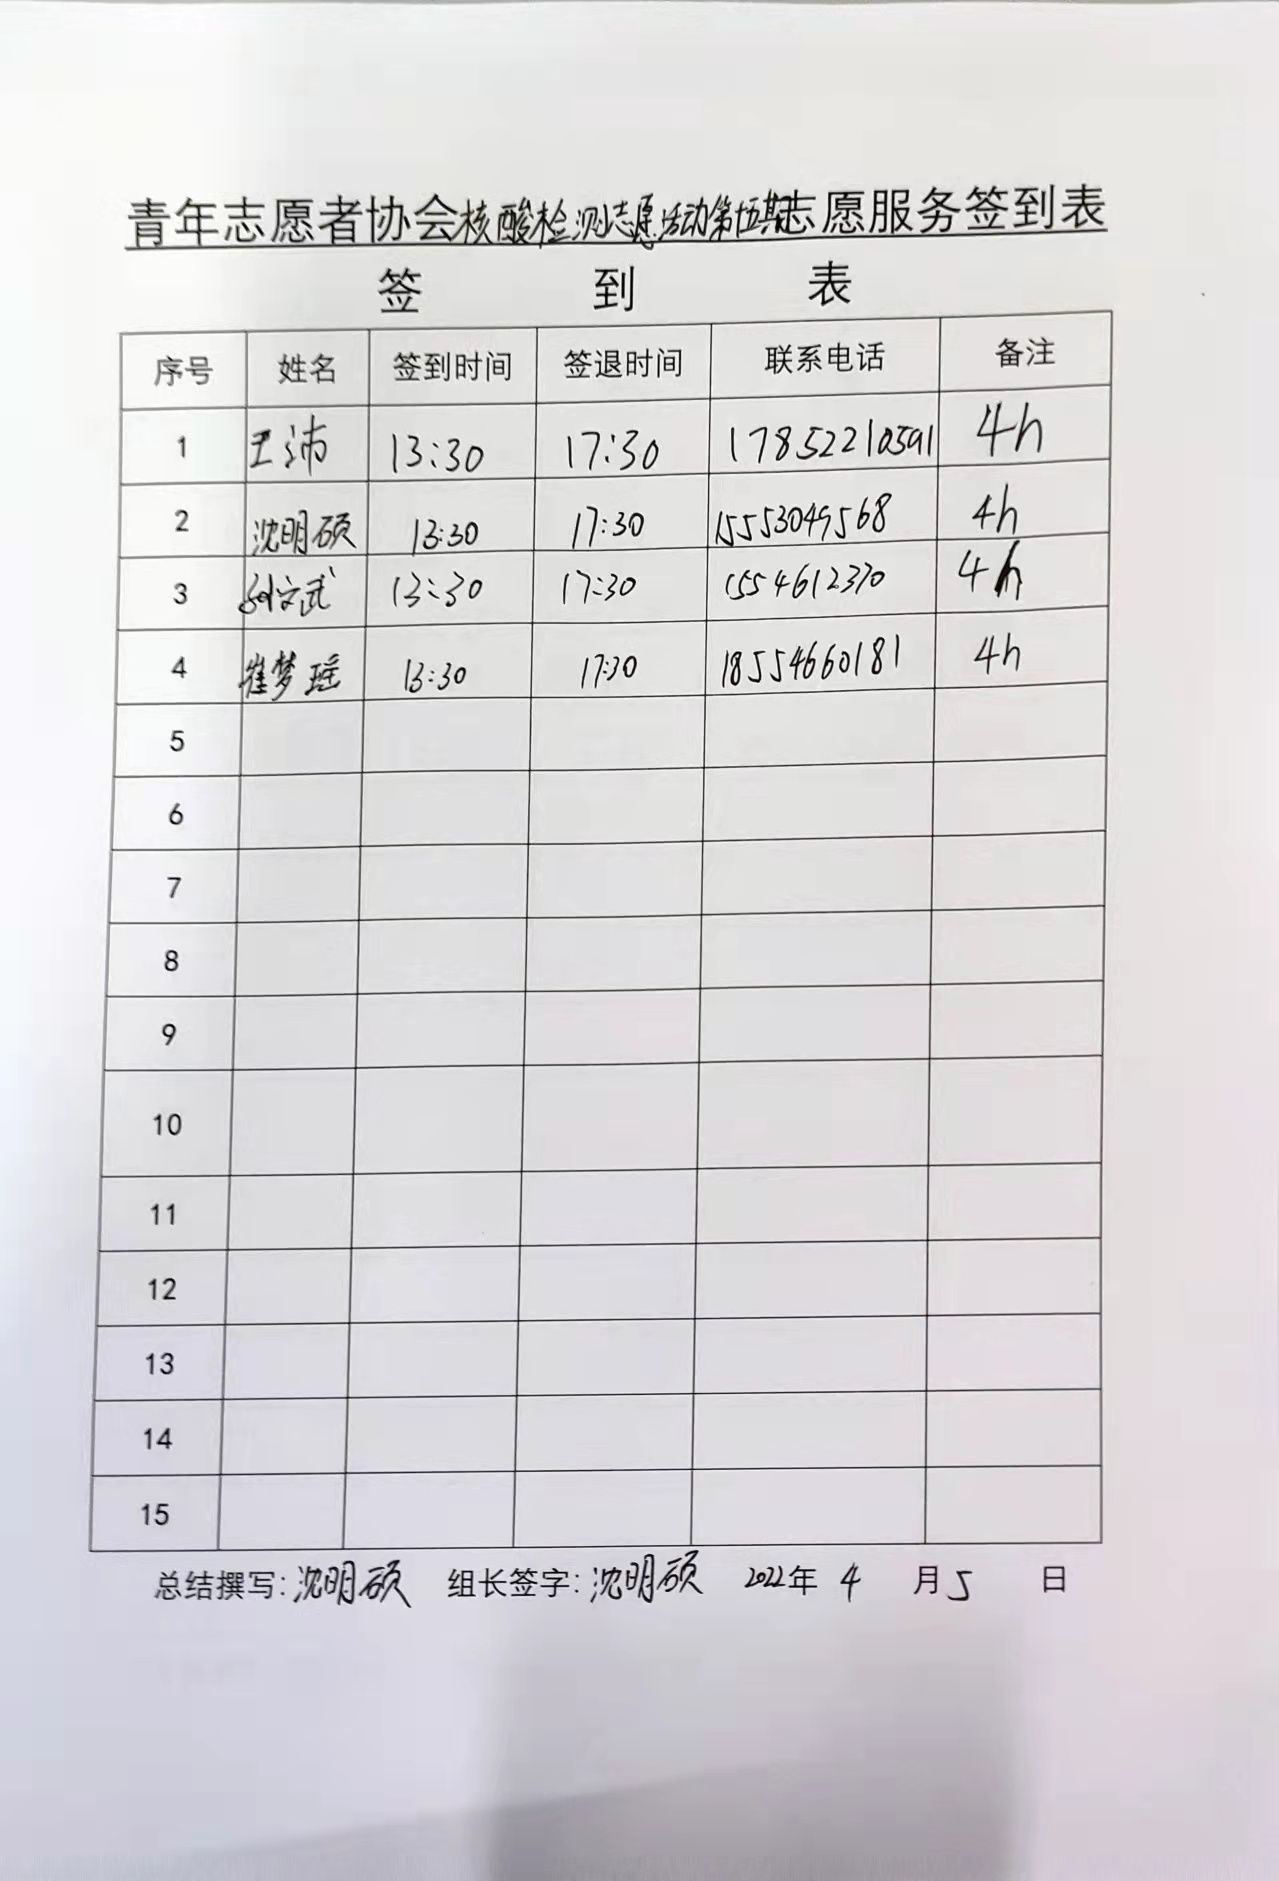 青年志愿者协会核酸检测志愿活动第伍期志愿服务签到表
签 到 表
序号 姓名 签到时间 签退时间 联系电话 备注
1 王沛 13:30 17:30 17852210591 4h
2 沈明硕 13:30 17:30 15553049568 4h
3 孙文武 13:30 17:30 1554612370 4h
4 崔梦瑶 13:30 17:30 18554660181 4h
5
6
7
8
9
10
11
12
13
14
15
总结撰写:沈明硕 组长签字:沈明硕 2022年 4 月 5 日